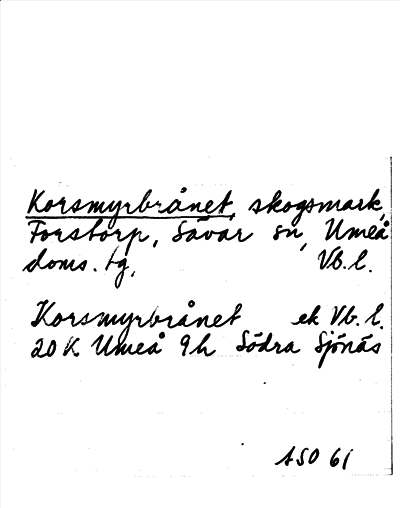 Korsmyrbrånet, skogsmark,
Forstorp, Sävar sn, Umeå
doms. tg, Vb. l.
Korsmyrbrånet ek Vb. l.
20 K Umeå 9h Södra Sjönäs
ASO 61